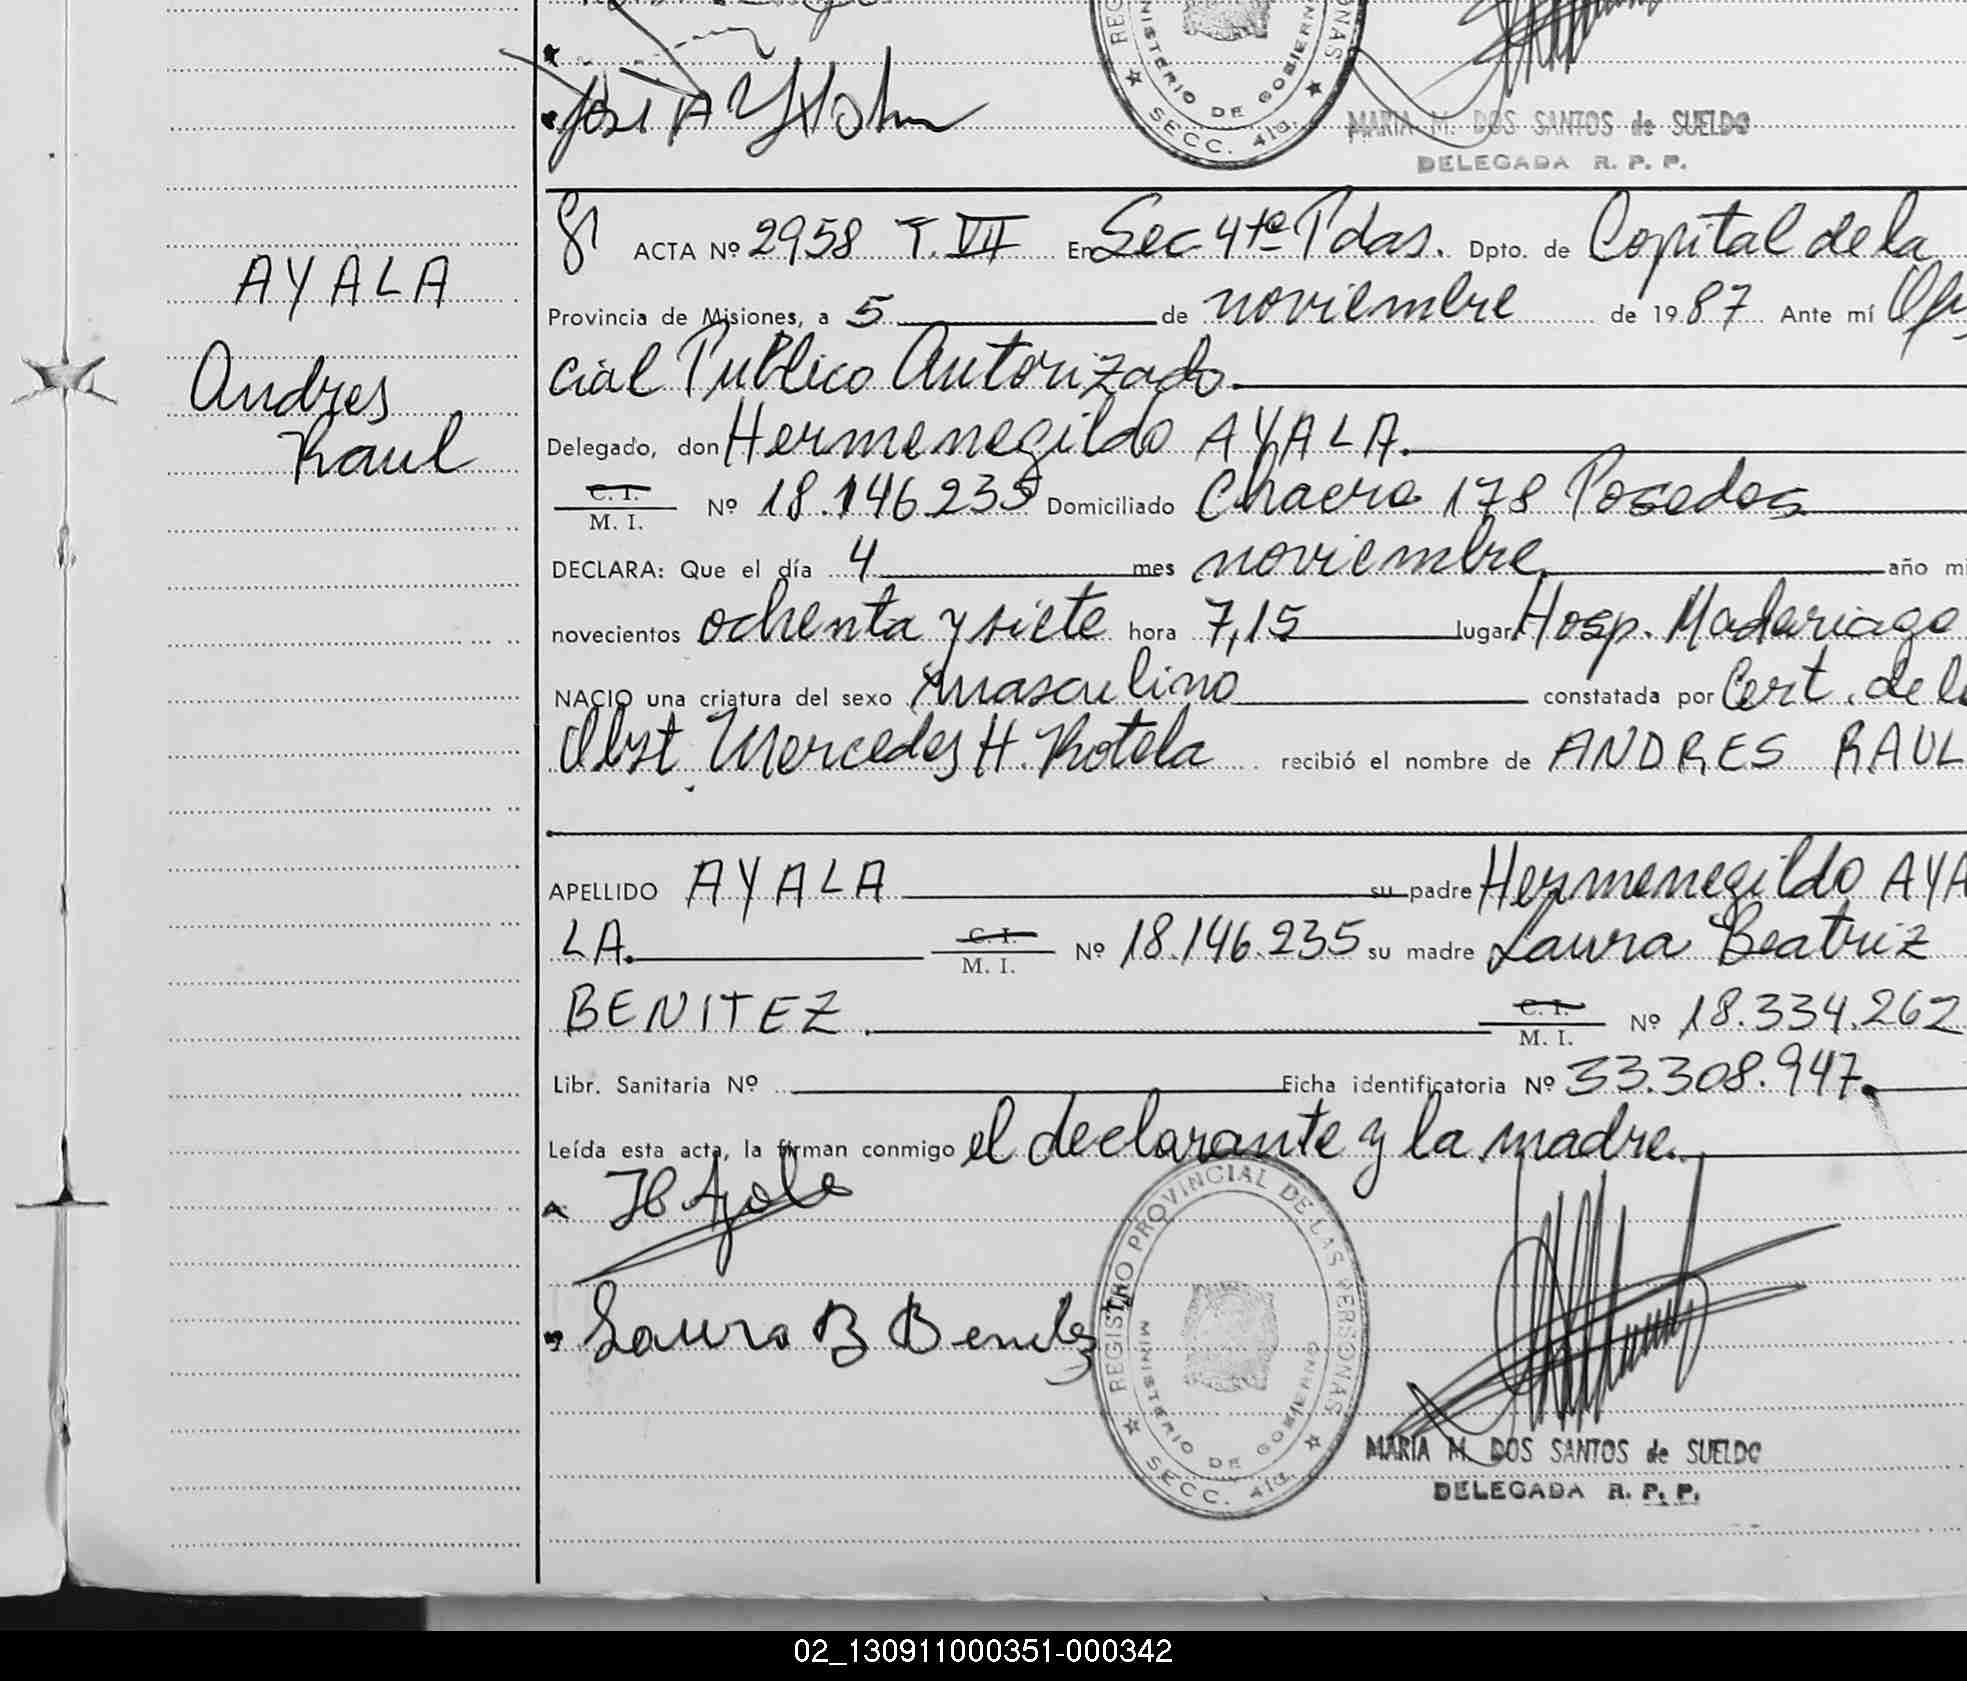 REG
MINISTERIO DE GOBIERN
ONAS
SECC. 4ta.
MARIA M. DOS SANTOS de SUELDO
DELEGADA R. P. P.
ACTA Nº 2958 T. VII En Sec 4ta Pdas. Dpto. de Capital de la
AYALA
Provincia de Misiones, a 5 de noviembre de 1987 Ante mí Ofi
Andres
cial Publico Autorizado.
Raul
Delegado, don Hermenegildo AYALA.
C. I.
M. I. Nº 18.146.235 Domiciliado Chacra 178 Posadas
DECLARA: Que el día 4 mes noviembre año mi
novecientos ochenta y siete hora 7,15 lugar Hosp. Madariaga
NACIO una criatura del sexo masculino constatada por Cert. de la
Obst. Mercedes H. Rotela recibió el nombre de ANDRES RAUL
APELLIDO AYALA su padre Hermenegildo AYA
LA. C. I. M. I. Nº 18.146.235 su madre Laura Beatriz
BENITEZ. C. I. M. I. Nº 18.334.262
Libr. Sanitaria Nº Ficha identificatoria Nº 33.308.947.
Leída esta acta, la firman conmigo el declarante y la madre.
H Ayala
REGISTRO PROVINCIAL DE LAS PERSONAS
MINISTERIO DE GOBIERNO
SECC. 4ta.
Laura B Benitez
MARIA M. DOS SANTOS de SUELDO
DELEGADA R. P. P.
02_130911000351-000342